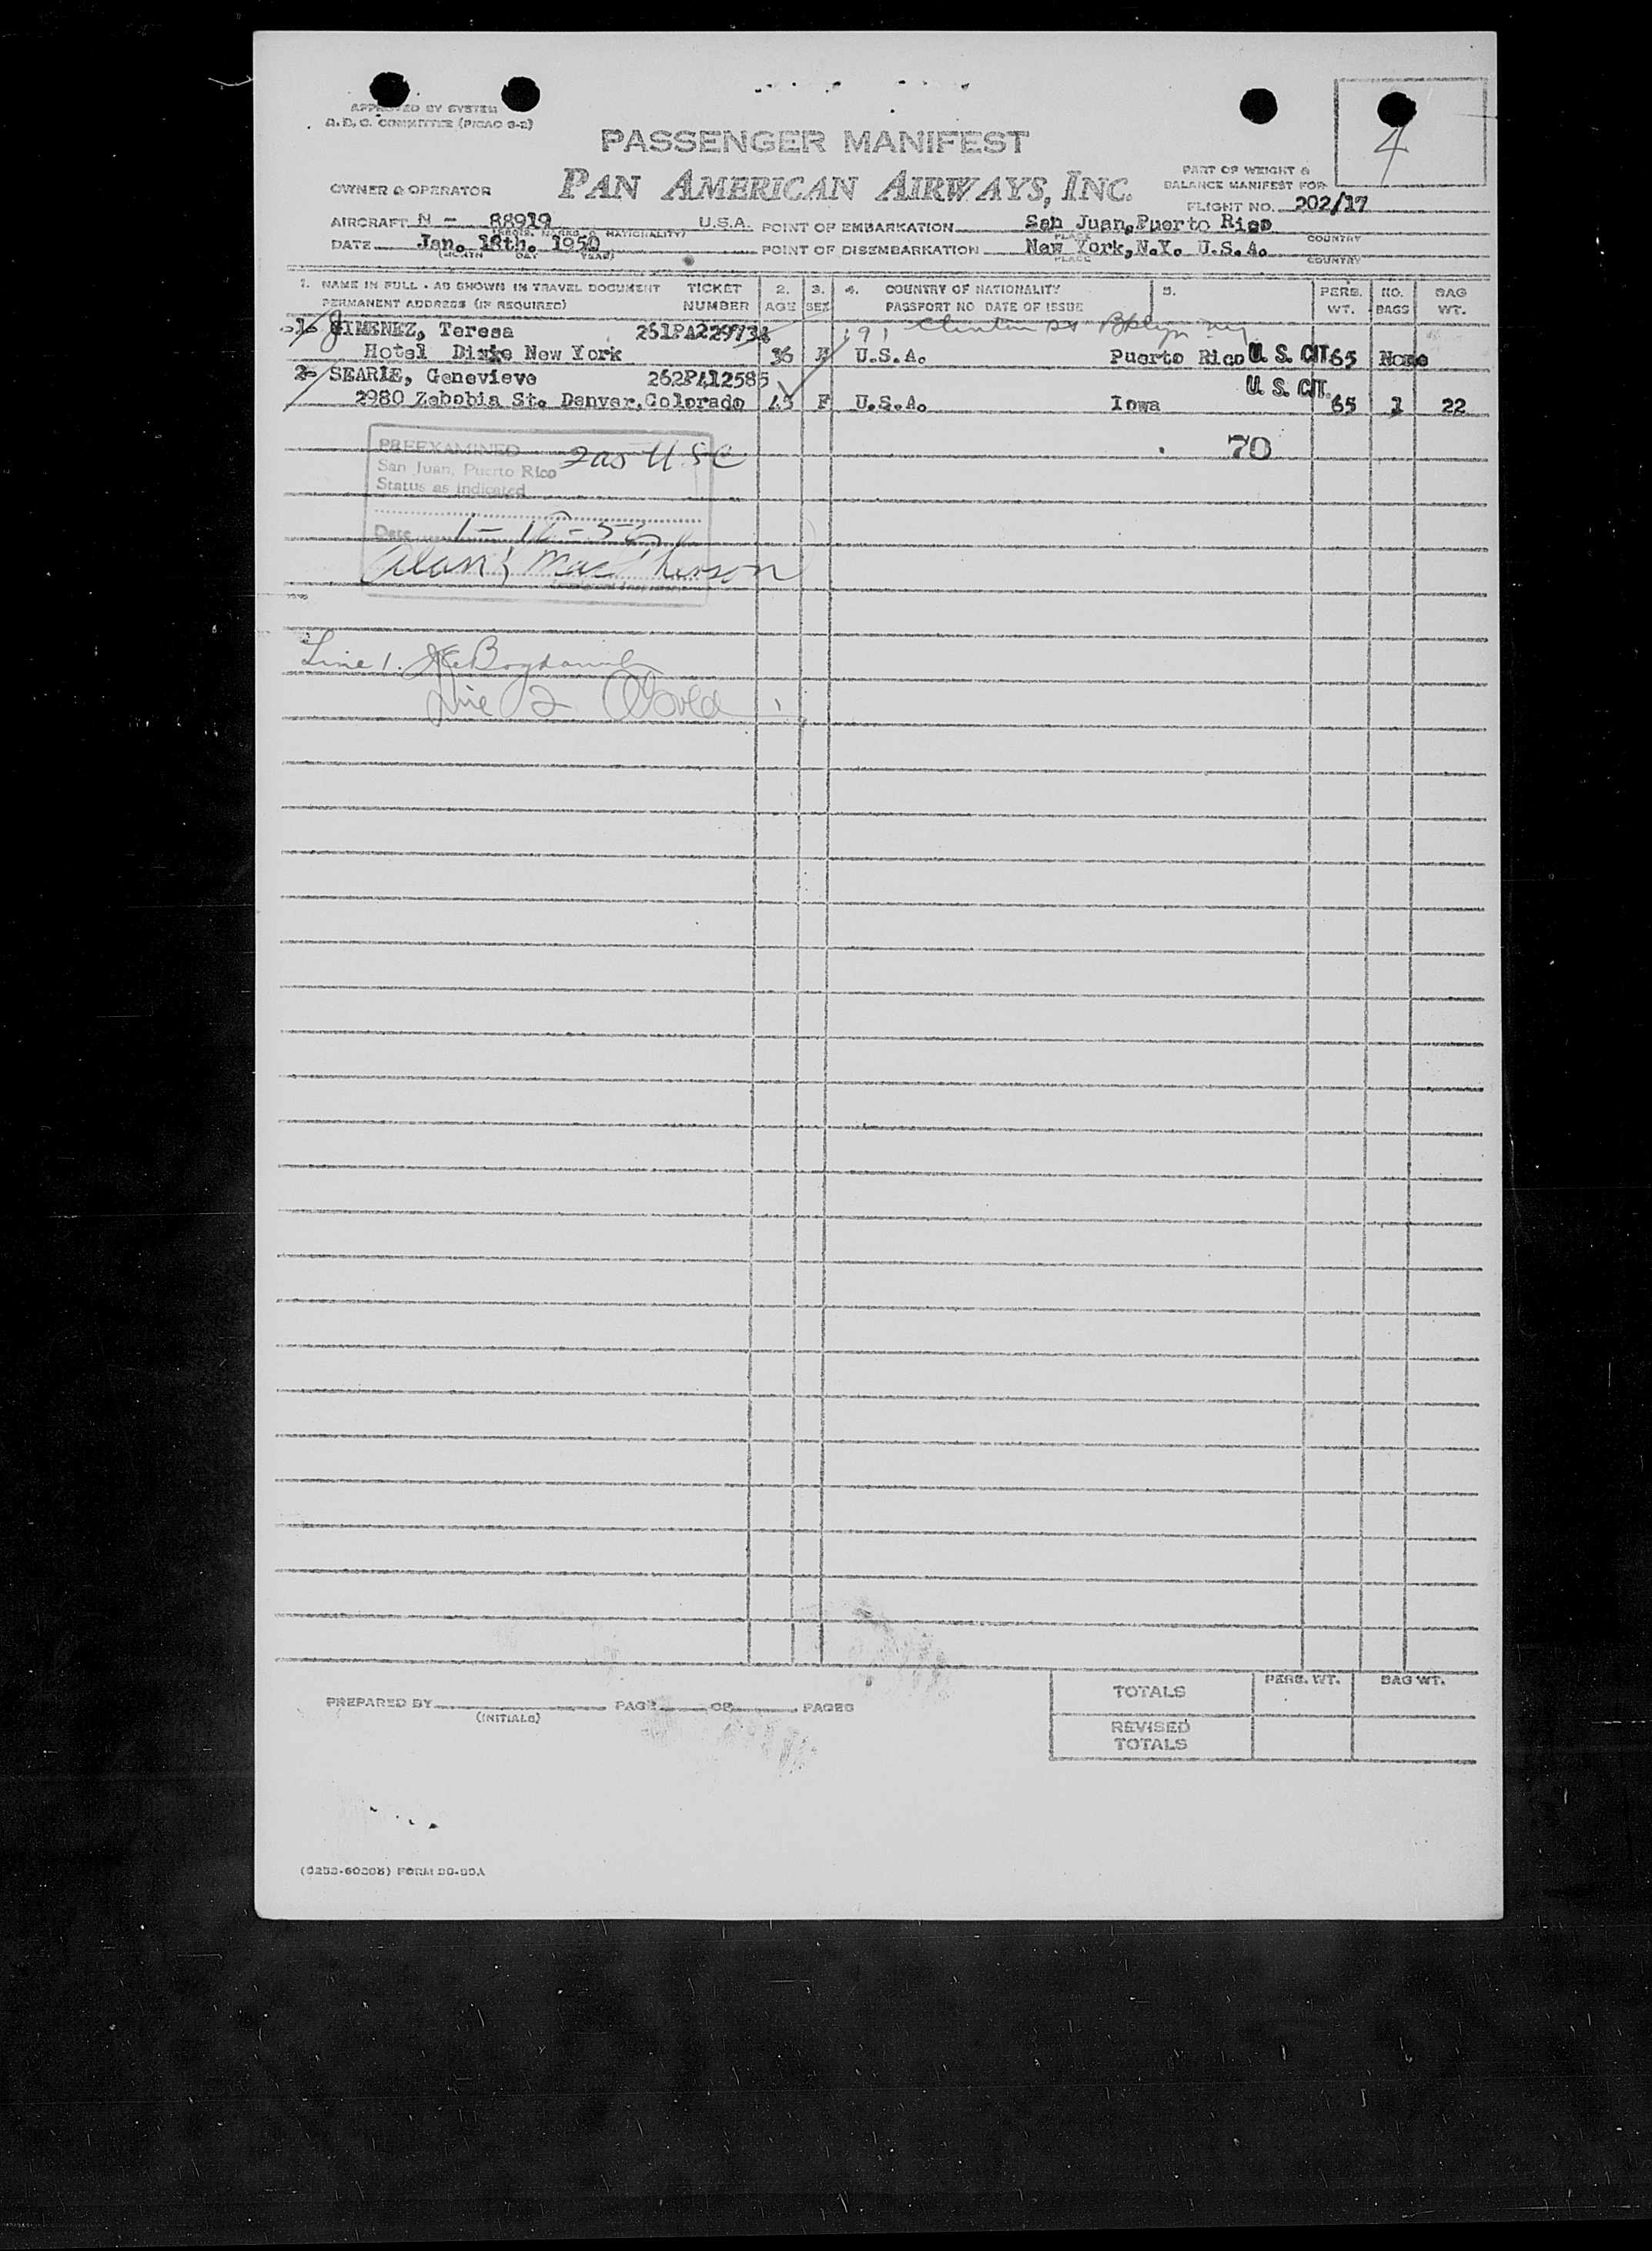 APPROVED BY SYSTEM
A. D. C. COMMITTEE (PICAO 3-2)
4
PASSENGER MANIFEST
PART OF WEIGHT &
BALANCE MANIFEST FOR
OWNER & OPERATOR PAN AMERICAN AIRWAYS, INC.
FLIGHT NO. 202/17
AIRCRAFT N - 88919 U.S.A. POINT OF EMBARKATION San Juan, Puerto Rico
PLACE COUNTRY
DATE Jan. 18th. 1950 POINT OF DISEMBARKATION New York, N.Y. U.S.A.
(MONTH DAY YEAR) PLACE COUNTRY
1. NAME IN FULL - AS SHOWN IN TRAVEL DOCUMENT TICKET 2. 3. 4. COUNTRY OF NATIONALITY 5. PERS. NO. BAG
PERMANENT ADDRESS (IF REQUIRED) NUMBER AGE SEX PASSPORT NO DATE OF ISSUE WT. BAGS WT.
1- JIMENEZ, Teresa 261PA229734 191 Clinton St Bklyn NY
Hotel New York 36 U.S.A. Puerto Rico U. S. CIT. 65 None
2- SEARLE, Genevieve 262PA12585 U. S. CIT.
2980 Zebobia St. Denver, Colorado 45 F U.S.A. Iowa 65 1 22
70
PREEXAMINED 2 as USC
San Juan, Puerto Rico
Status as indicated
Date
Line 1.
Line 2
PREPARED BY PAGE OF PAGES
(INITIALS)
TOTALS PERS. WT. BAG WT.
REVISED
TOTALS